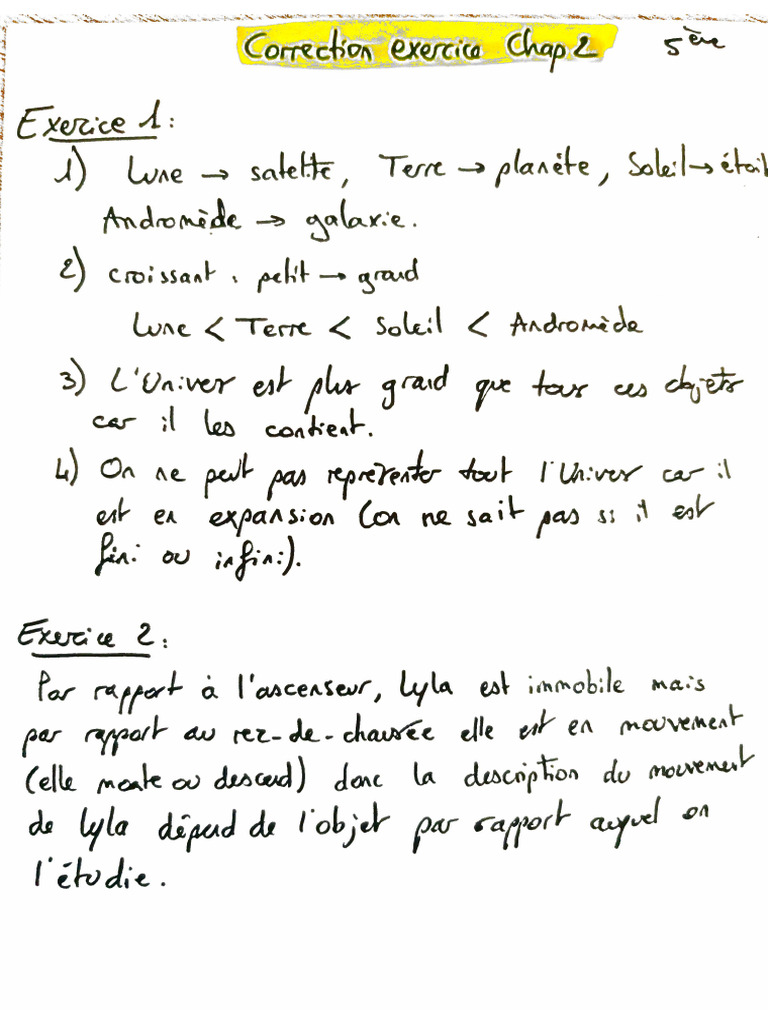 Correction exercice Chap.2 5ère
Exercice 1:
1) Lune → satellite, Terre → planète, Soleil → étoil
Andromède → galaxie.
2) croissant : petit → grand
Lune < Terre < Soleil < Andromède
3) L'Univer est plus grand que tous ces objets
car il les contient.
4) On ne peut pas représenter tout l'Univer car il
est en expansion (on ne sait pas si il est
fini ou infini).
Exercice 2:
Par rapport à l'ascenseur, Lyla est immobile mais
par rapport au rez-de-chaussée elle est en mouvement
(elle monte ou descend) donc la description du mouvement
de Lyla dépend de l'objet par rapport auquel on
l'étudie.